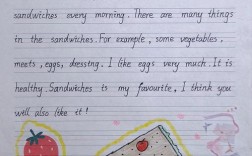 sandwiches every morning. There are many things
in the sandwiches. For example, some vegetables,
meets, eggs, dressing. I like eggs very much. It is
healthy. Sandwiches is my favourite, I think you
will also like it!